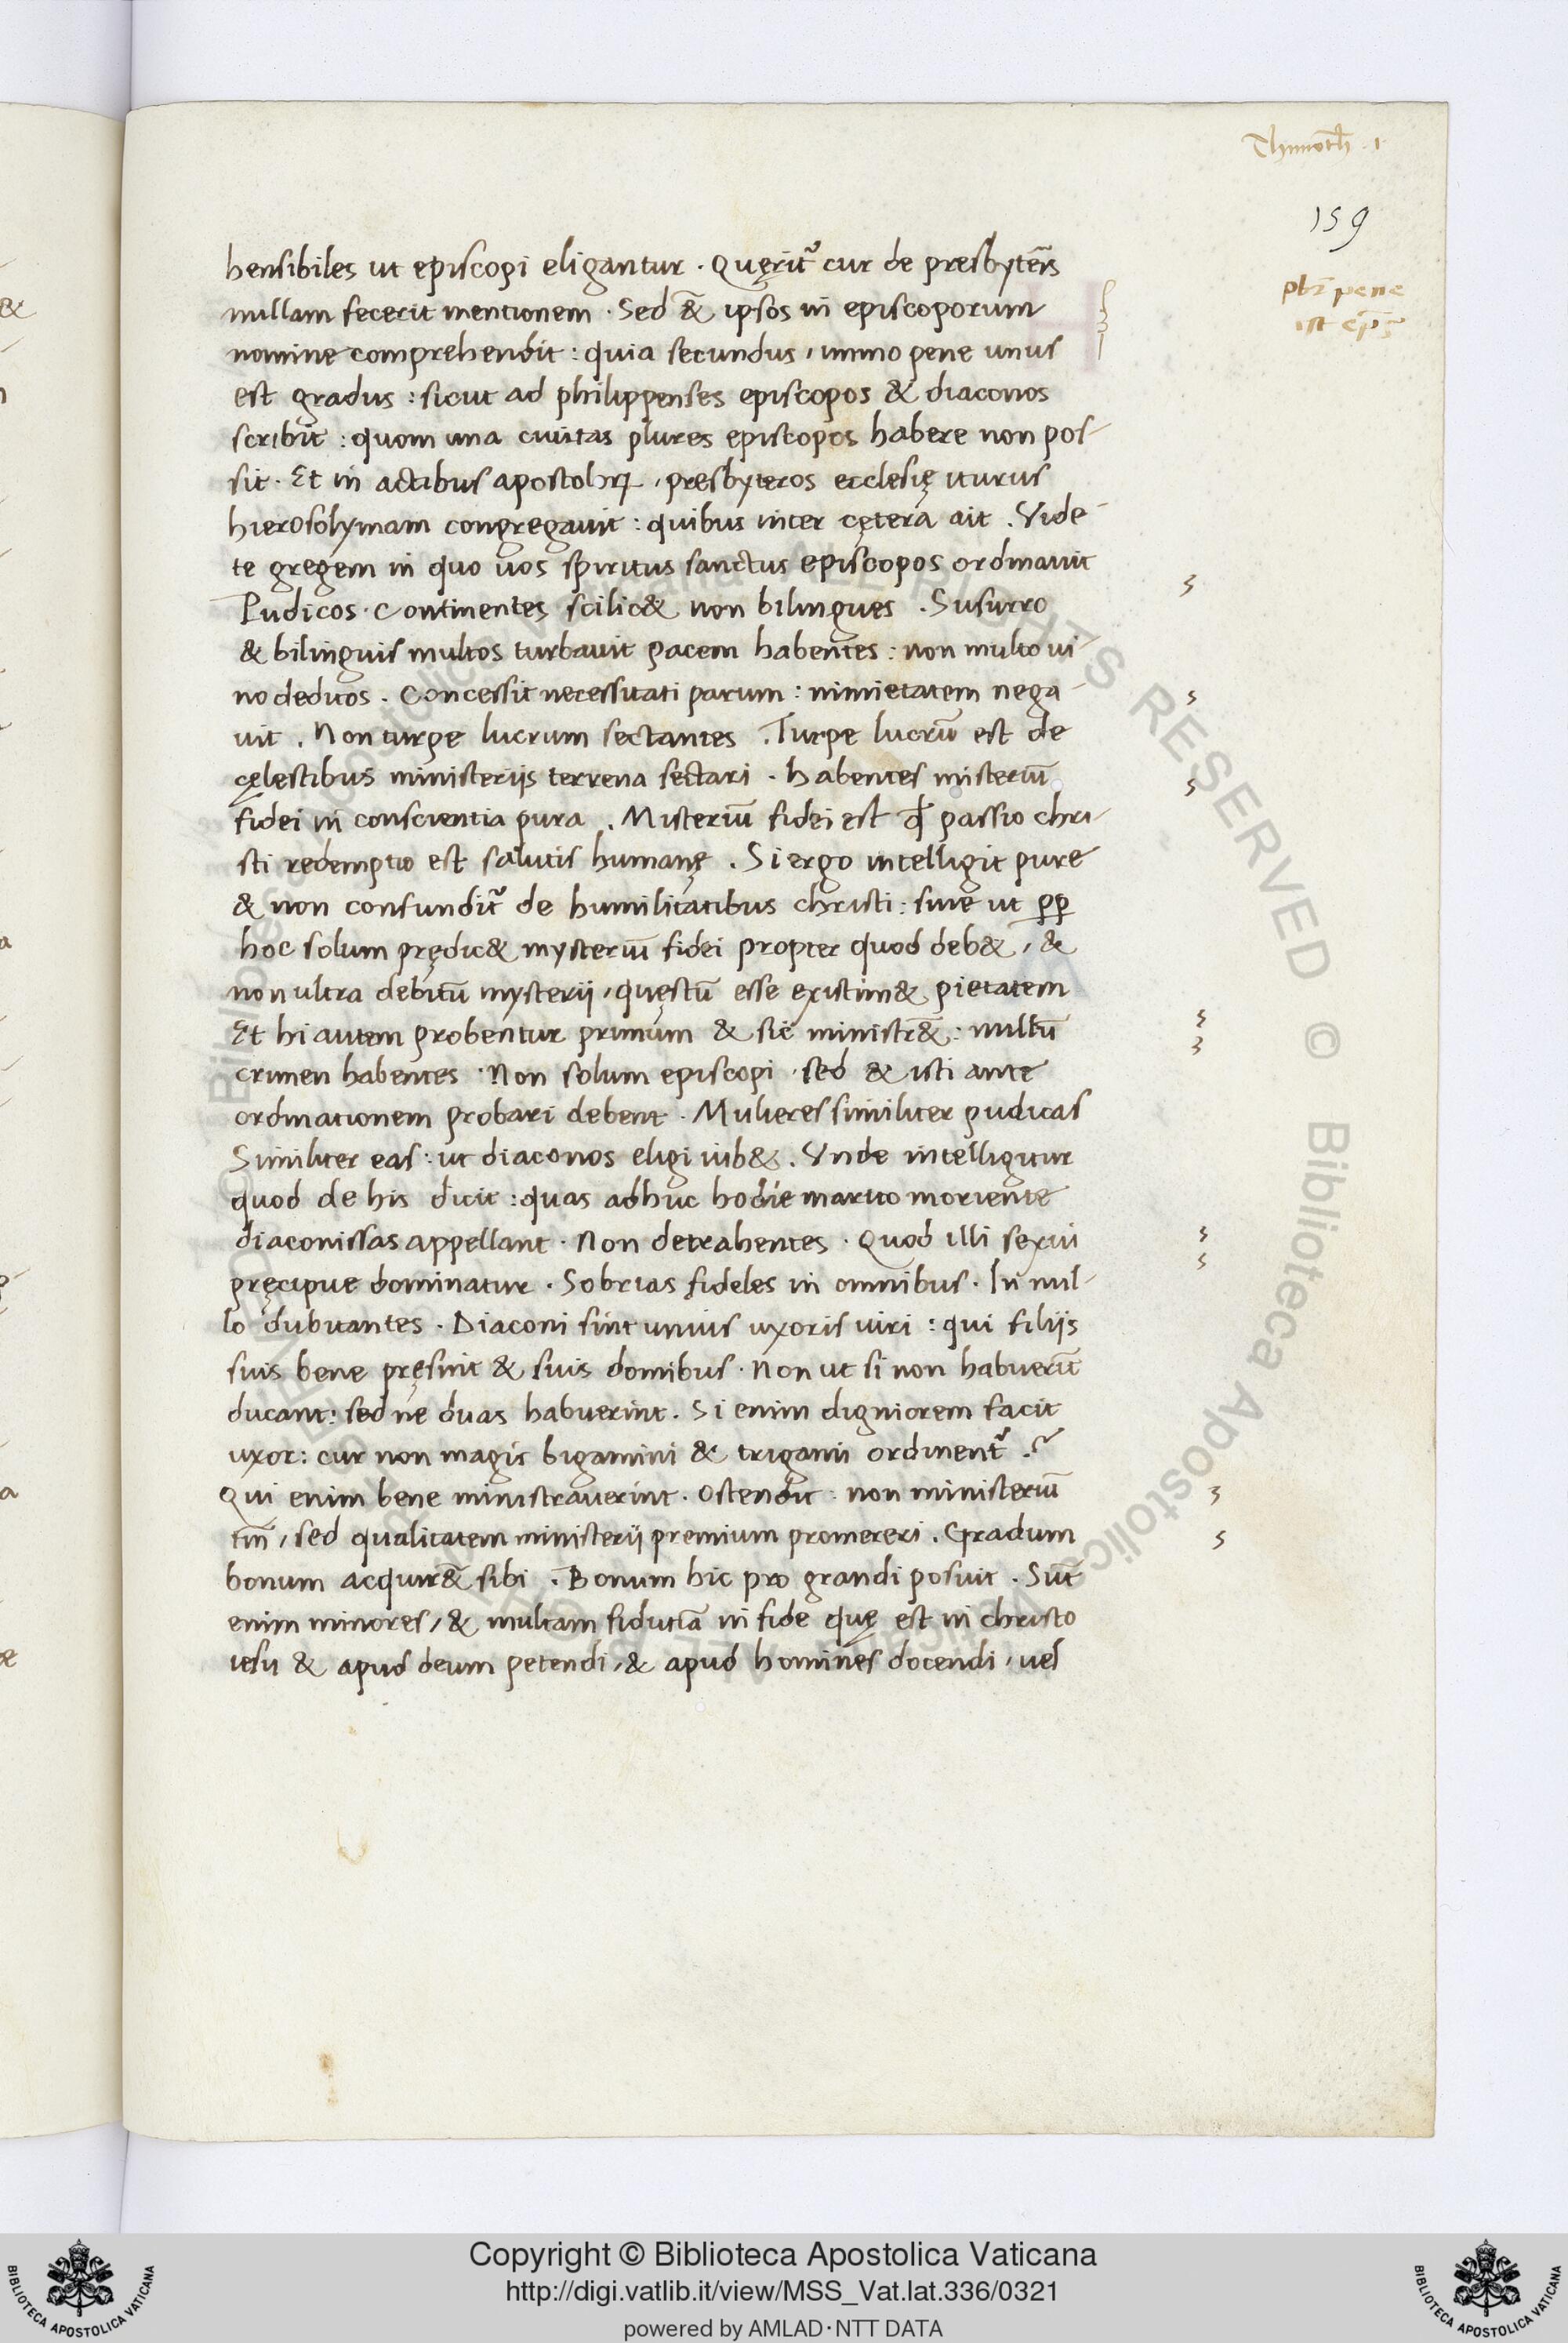 Thimoth̄ · 1 ·
159
hensibiles ut episcopi eligantur · Quęrit᷑ cur de presbyter̄s
nullam fecerit mentionem · Sed &̄ ipsos in episcoporum
nomine comprehendit : quia secundus , immo pene unus
est gradus : sicut ad philippenses episcopos & diaconos
scribit : quom una ciuitas plures episcopos habere non pos-
sit · Et in actibus apostoloꝝ , presbyteros ecclesię iturus
hierosolymam congregauit : quibus inter cętera ait . Vide-
te gregem in quo uos spiritus sanctus episcopos ordinauit
Pudicos · Continentes scilic& non bilingues . Susurro
& bilinguis multos turbauit pacem habentes : non multo ui-
no deditos . Concessit necessitati parum : nimietatem nega-
uit . Non turpe lucrum sectantes . Turpe lucrū est de
cęlestibus ministeriis terrena sectari · habentes misteriū
fidei in conscientia pura . Misteriū fidei est ꝙ passio chri-
sti redemptio est salutis humanę . Si ergo intelligit pure
& non confundit᷑ de humilitatibus christi : siue ut ꝑꝑ
hoc solum prędic& mysteriū fidei propter quod deb& , &
non ultra debitū mysterij , quęstū esse existim& pietatem
Et hi autem probentur primum & sic ministr&̄ : nullū
crimen habentes · Non solum episcopi · sed & isti ante
ordinationem probari debent · Mulieres similiter pudicas
Similiter eas : ut diaconos eligi iub& . Vnde intelligitur
quod de his dicit : quas adhuc hodie marito moriente
diaconissas appellant · Non detrahentes · Quod illi sexui
pręcipue dominatur · Sobrias fideles in omnibus · In nul-
lo dubitantes · Diaconi sint unius uxoris uiri : qui filiis
suis bene pręsint & suis domibus · Non ut si non habuerīt
ducant : sed ne duas habuerint . Si enim digniorem facit
uxor : cur non magis bigamini & trigami ordinent᷑ ?
Qui enim bene ministrauerint · Ostendit : non ministeriū
tm̄ , sed qualitatem ministerij premium promereri . Gradum
bonum acquir&̄ sibi . Bonum hic pro grandi posuit . Sūt
enim minores , & multam fidutiā in fide quę est in christo
iesu & apud deum petendi , & apud homines docendi , uel
pbr̄ pene
est ep̄s
Copyright © Biblioteca Apostolica Vaticana
http://digi.vatlib.it/view/MSS_Vat.lat.336/0321
powered by AMLAD·NTT DATA
BIBLIOTECA APOSTOLICA VATICANA
BIBLIOTECA APOSTOLICA VATICANA